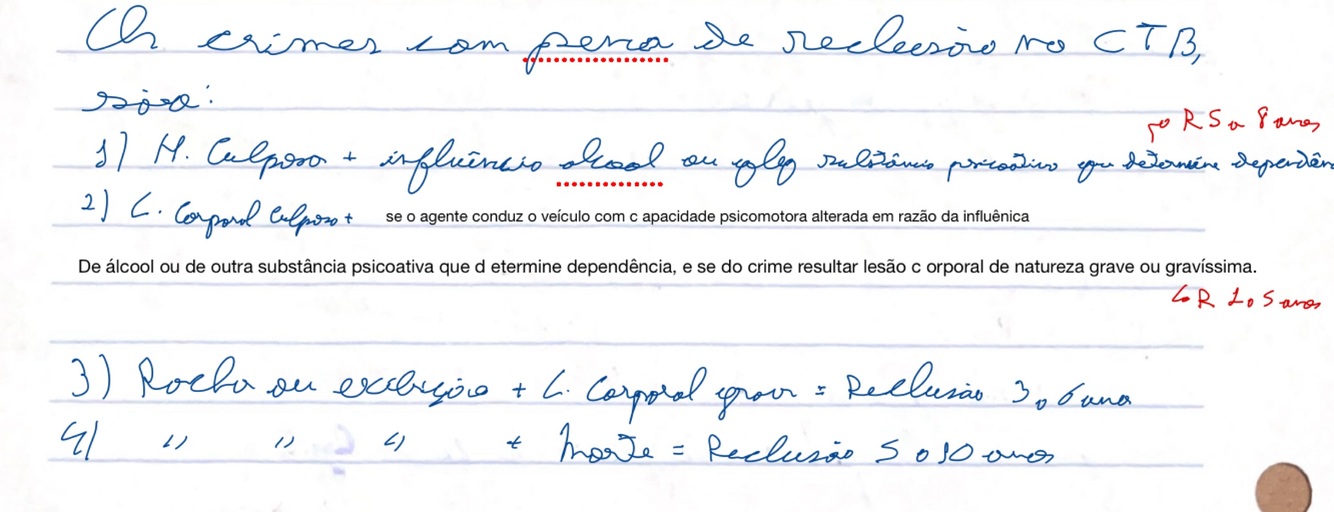 Os crimes com pena de reclusão no CTB,
são:
R 5 a 8 anos
1) H. Culposo + influência alcool ou qlq substância psicoativa que determine dependên
2) L. Corporal Culposo + se o agente conduz o veículo com c apacidade psicomotora alterada em razão da influênica
De álcool ou de outra substância psicoativa que d etermine dependência, e se do crime resultar lesão c orporal de natureza grave ou gravíssima.
R 2 a 5 anos
3) Racha ou exibição + L. Corporal grave = Reclusão 3 a 6 anos
4) " " " + Morte = Reclusão 5 a 10 anos